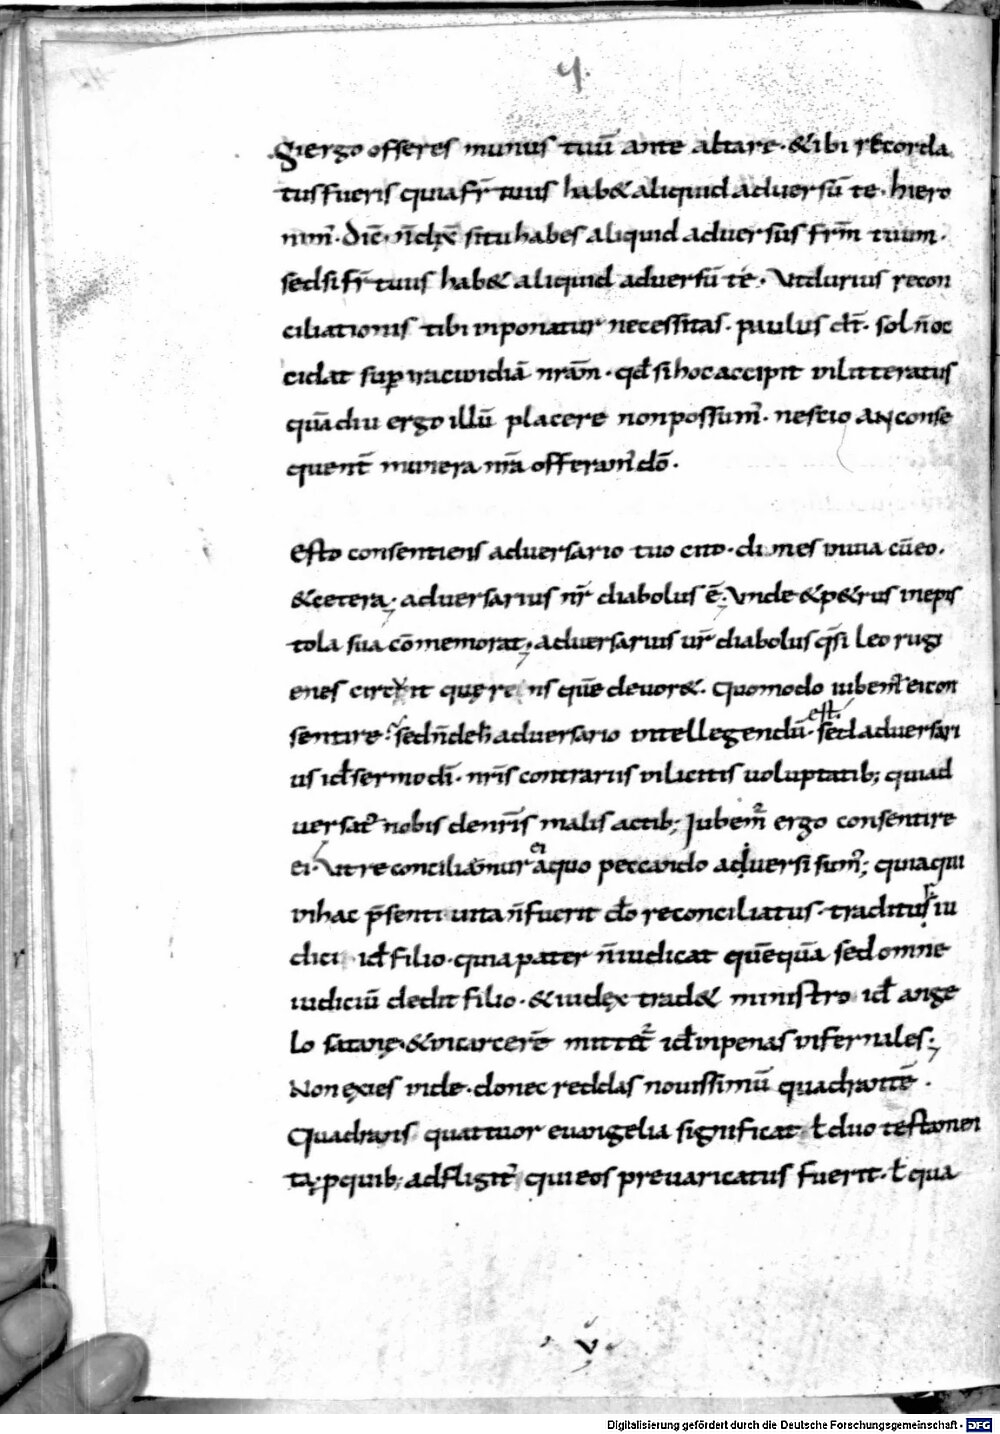 4.
Si ergo offeres munus tuū ante altare · & ibi recorda
tus fueris quia fr̄ tuus hab& aliquid adversū te · hiero
nim̄ · dic̄ · n̄ dix̄ si tu habes aliquid adversus fr̄m tuum ·
sed si fr̄ tuus hab& aliquid adversū te · Ut durius recon
ciliationis tibi inponatur necessitas · paulus dt̄ · sol n̄ oc
cidat sup iracundiā nr̄am · qđ si hoc accipit vilitteratus
quādiu ergo illū placere non possum̄ · nescio AN conse
quent̄ munera nr̄a offeram̄ dō ·
Esto consentiens adversario tuo cito · dū mes in uia cū eo ·
& cetera; adversarius nr̄ diabolus ē; Unde & p&rus in epis
tola sua cōmemorat; adversarius ur̄ diabolus q̄si leo rugi
enes circuit querens quē devor& · Quomodo iubem̄ ei con
sentire · sed n̄ de h̄ adversario intellegendū est · sed adversari
us iđ sermo dī · nr̄is contrariis inlicitis uoluptatib; qui ad
uersat̄ nobis de nr̄is malis actib; Jubem̄ ergo consentire
ei · Ut reconciliamur ei a quo peccando adversi sum̄; quia qui
in hac p̄senti uita n̄ fuerit đo reconciliatus · traditus iu
dici iđ filio · quia pater n̄ iudicat quēquā sed omne
iudiciū dedit filio · & iudex trad& ministro iđ ange
lo satanę · & in carcerē mittet̄ iđ in penas infernales;
Non exies inde · donec reddas nouissimū quadrantē ·
Quadrans quattuor euangelia significat ł duo testamen
ta; p quib; adfligit̄ qui eos prevaricatus fuerit · ł qua
v
Digitalisierung gefördert durch die Deutsche Forschungsgemeinschaft - DFG